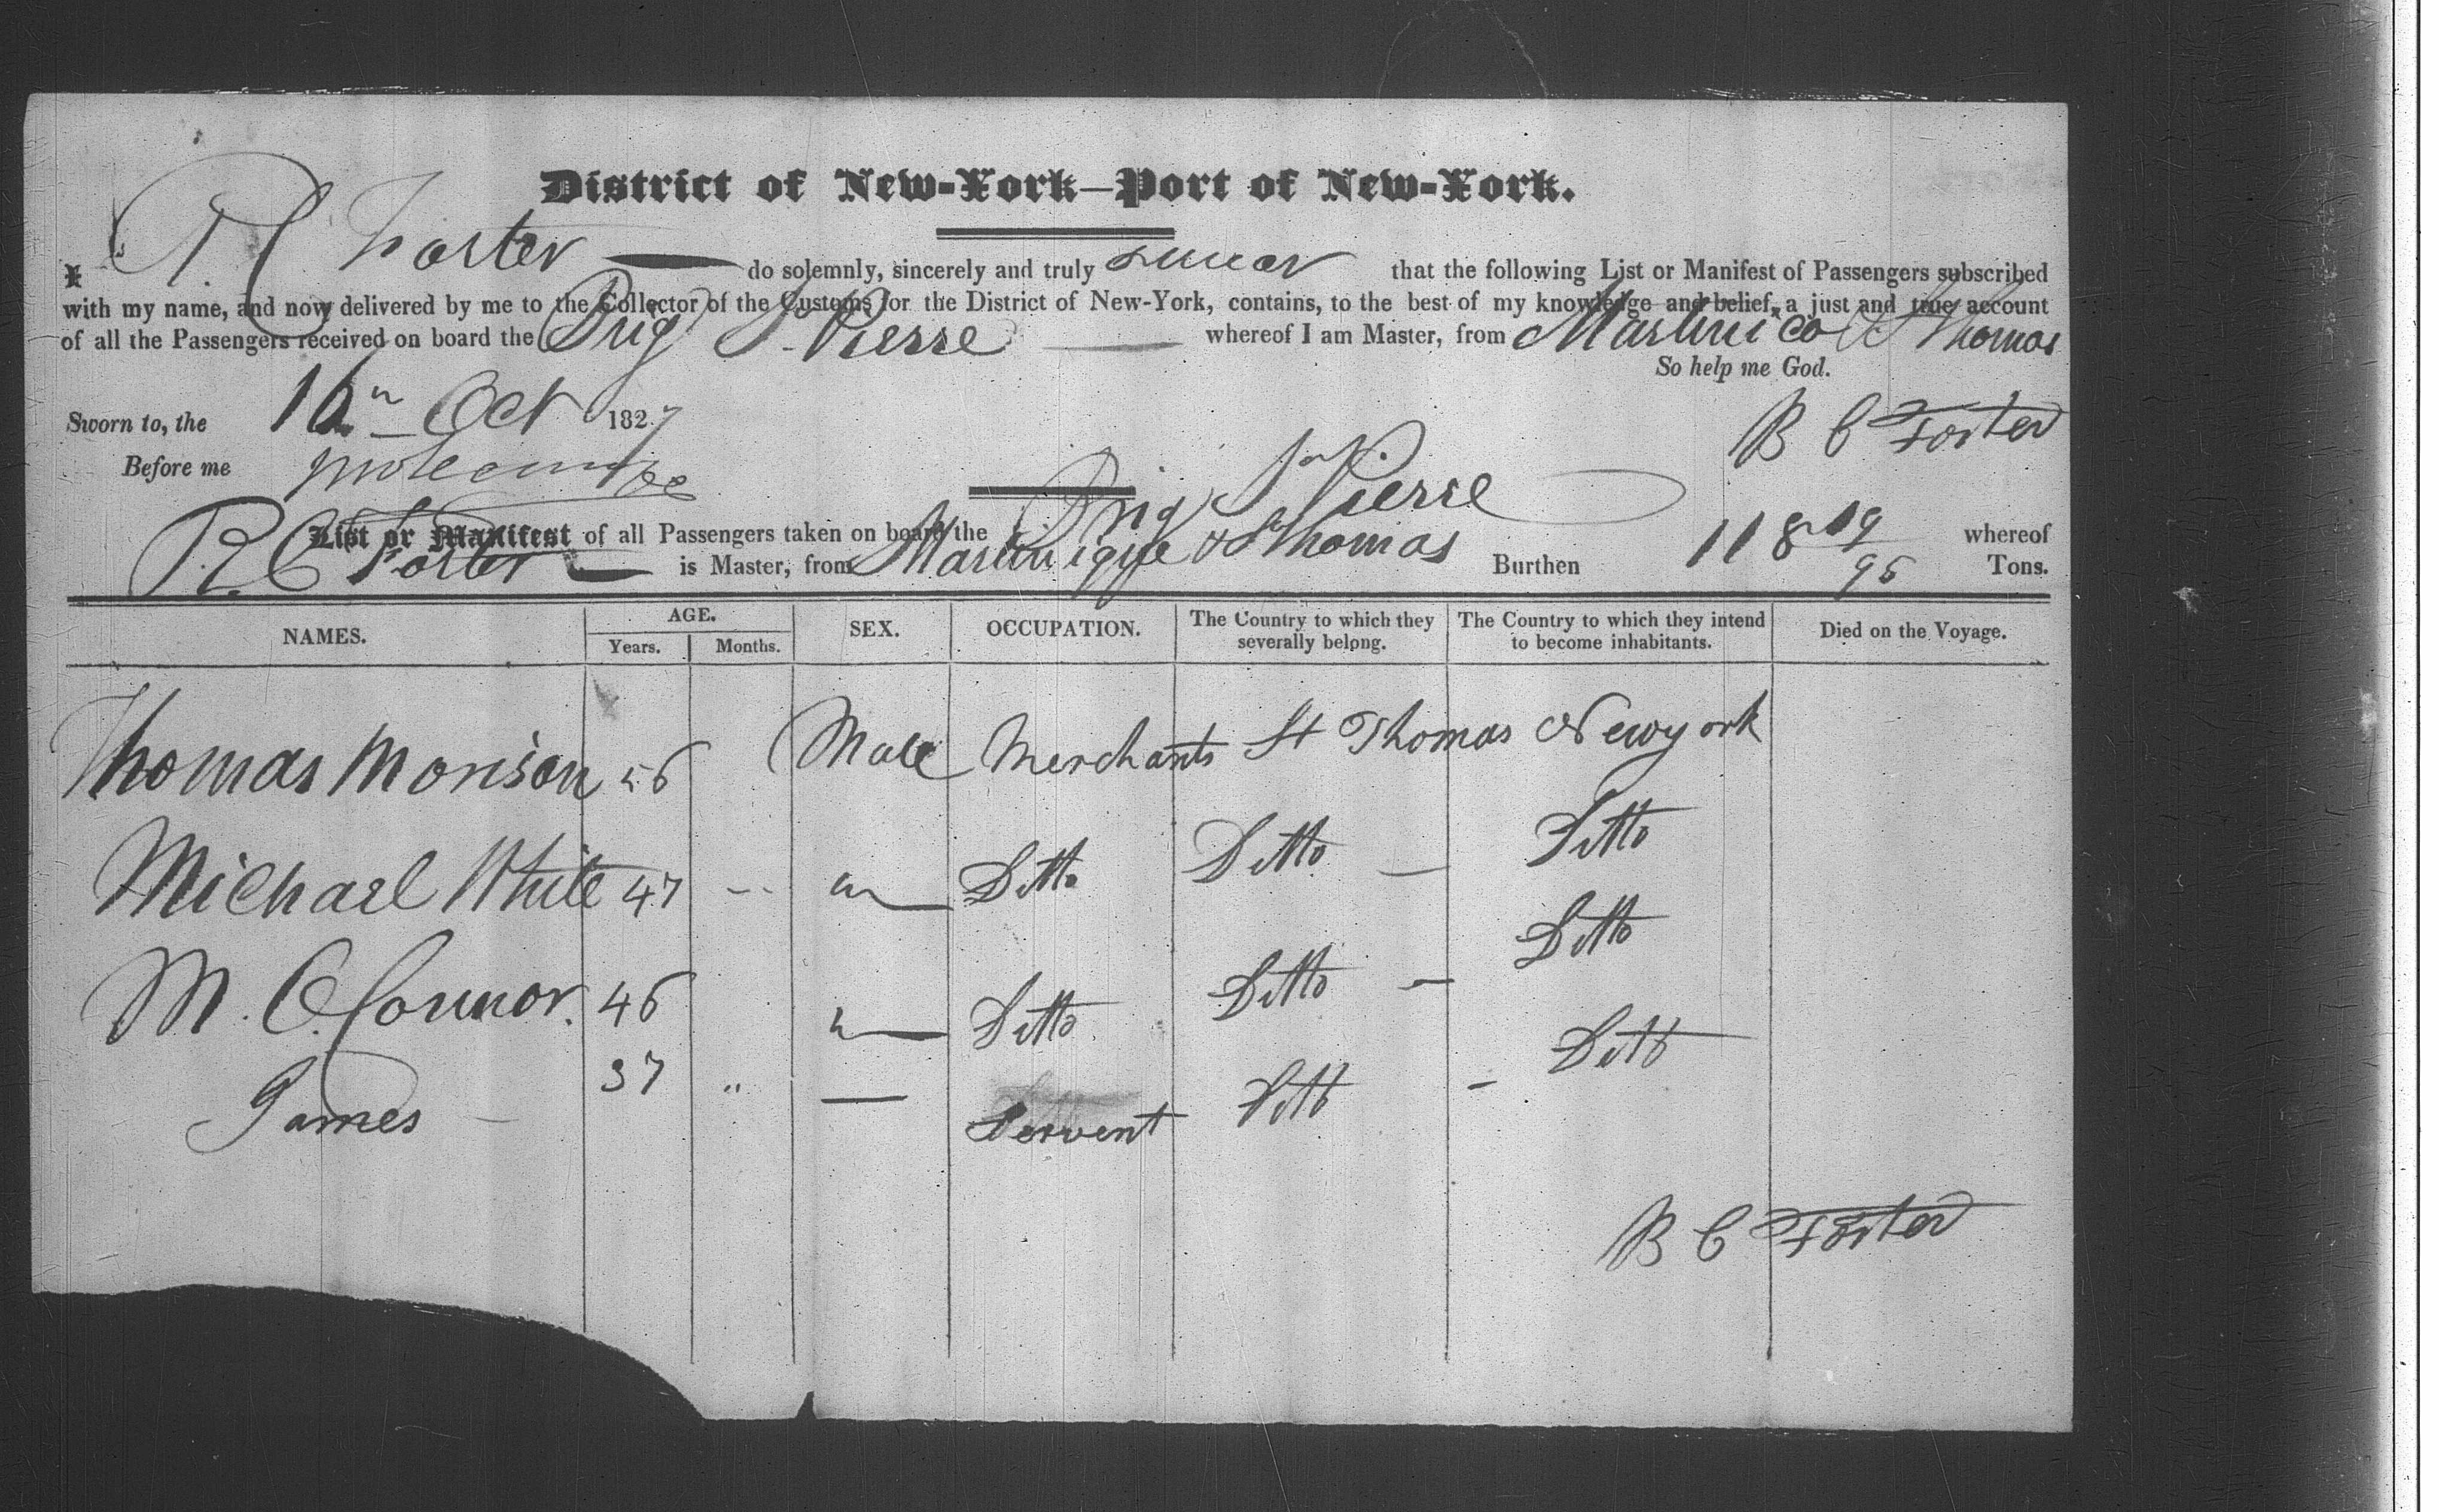 District of New-York—Port of New-York.
I R C Forster do solemnly, sincerely and truly swear that the following List or Manifest of Passengers subscribed
with my name, and now delivered by me to the Collector of the Customs for the District of New-York, contains, to the best of my knowledge and belief, a just and true account
of all the Passengers received on board the Brig St. Pierre whereof I am Master, from Martinico & St Thomas
So help me God.
Sworn to, the 16th Oct 1827
B C Forster
Before me
List or Manifest of all Passengers taken on board the Brig St. Pierre whereof
R. C Forster is Master, from Martinique & St Thomas Burthen 118 19/95 Tons.
NAMES. AGE. SEX. OCCUPATION. The Country to which they severally belong. The Country to which they intend to become inhabitants. Died on the Voyage.
Years. Months.
Thomas Morison 56 Male Merchants St Thomas Newyork
Michael White 47 -- Ditto Ditto — Ditto
M. O. Connor. 46 Ditto Ditto — Ditto
James — 37 " — Servent Ditto - Ditto
B C Forster